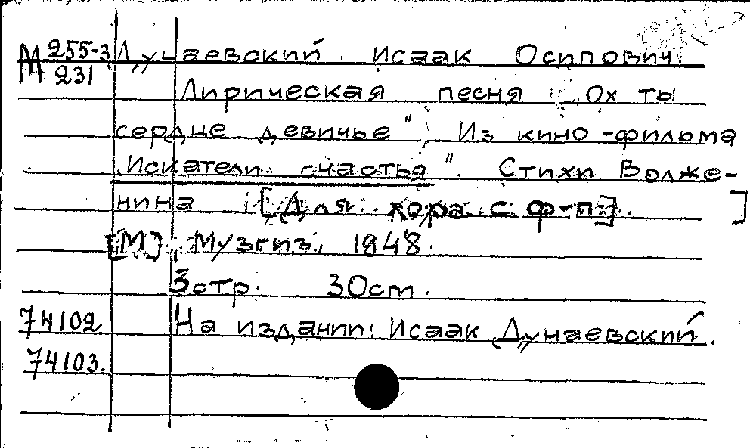 М 255-3 Дунаевский Исаак Осипович
231
Лирическая песня „Ох ты
сердце девичье". Из кино-фильма
„Искатели счастья". Стихи Волже-
нина [Для хора с ф-п]. ]
[М], Музгиз, 1948.
3 стр. 30 cm.
74102 На издании: Исаак Дунаевский.
74103.